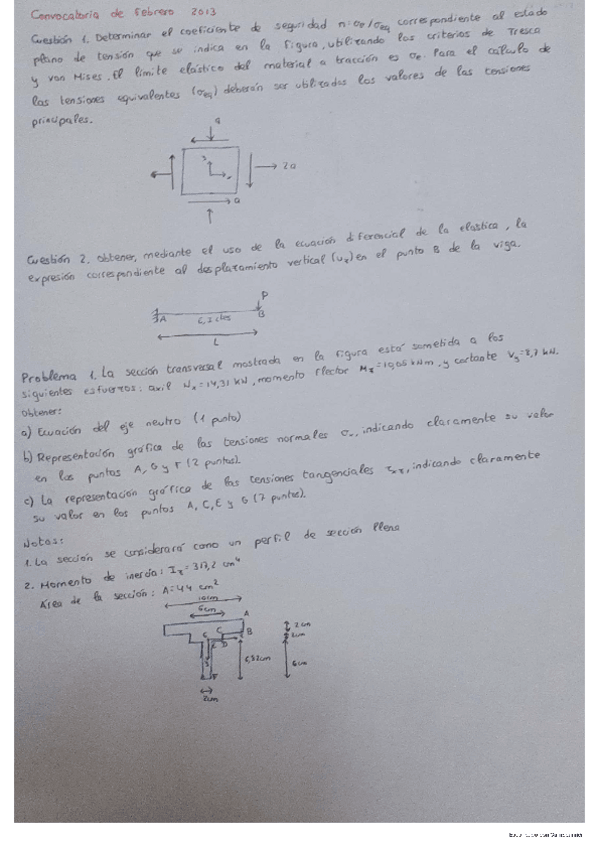 Convocatoria de febrero 2013
Cuestión 1. Determinar el coeficiente de seguridad n=σe/σeq correspondiente al estado
plano de tensión que se indica en la figura, utilizando los criterios de Tresca
y von Mises. El límite elástico del material a tracción es σe. Para el cálculo de
las tensiones equivalentes (σeq) deberán ser utilizados los valores de las tensiones
principales.
2σ
σ
Cuestión 2. Obtener, mediante el uso de la ecuación diferencial de la elástica, la
expresión correspondiente al desplazamiento vertical (uy) en el punto B de la viga.
P
A
B
L
Problema 1. La sección transversal mostrada en la figura está sometida a los
siguientes esfuerzos: axil Nx=14,31 kN, momento flector Mz= kNm, y cortante Vy=8,7 kN.
Obtener:
a) Ecuación del eje neutro (1 punto)
b) Representación gráfica de las tensiones normales σx, indicando claramente su valor
en los puntos A, G y F (2 puntos).
c) La representación gráfica de las tensiones tangenciales, indicando claramente
su valor en los puntos A, C, E y G (7 puntos).
Notas:
1. La sección se considerará como un perfil de sección llena
2. Momento de inercia: Iz=313,2 cm⁴
Área de la sección: A=44 cm²
10cm
6cm
A
2cm
C
B
6cm
2cm